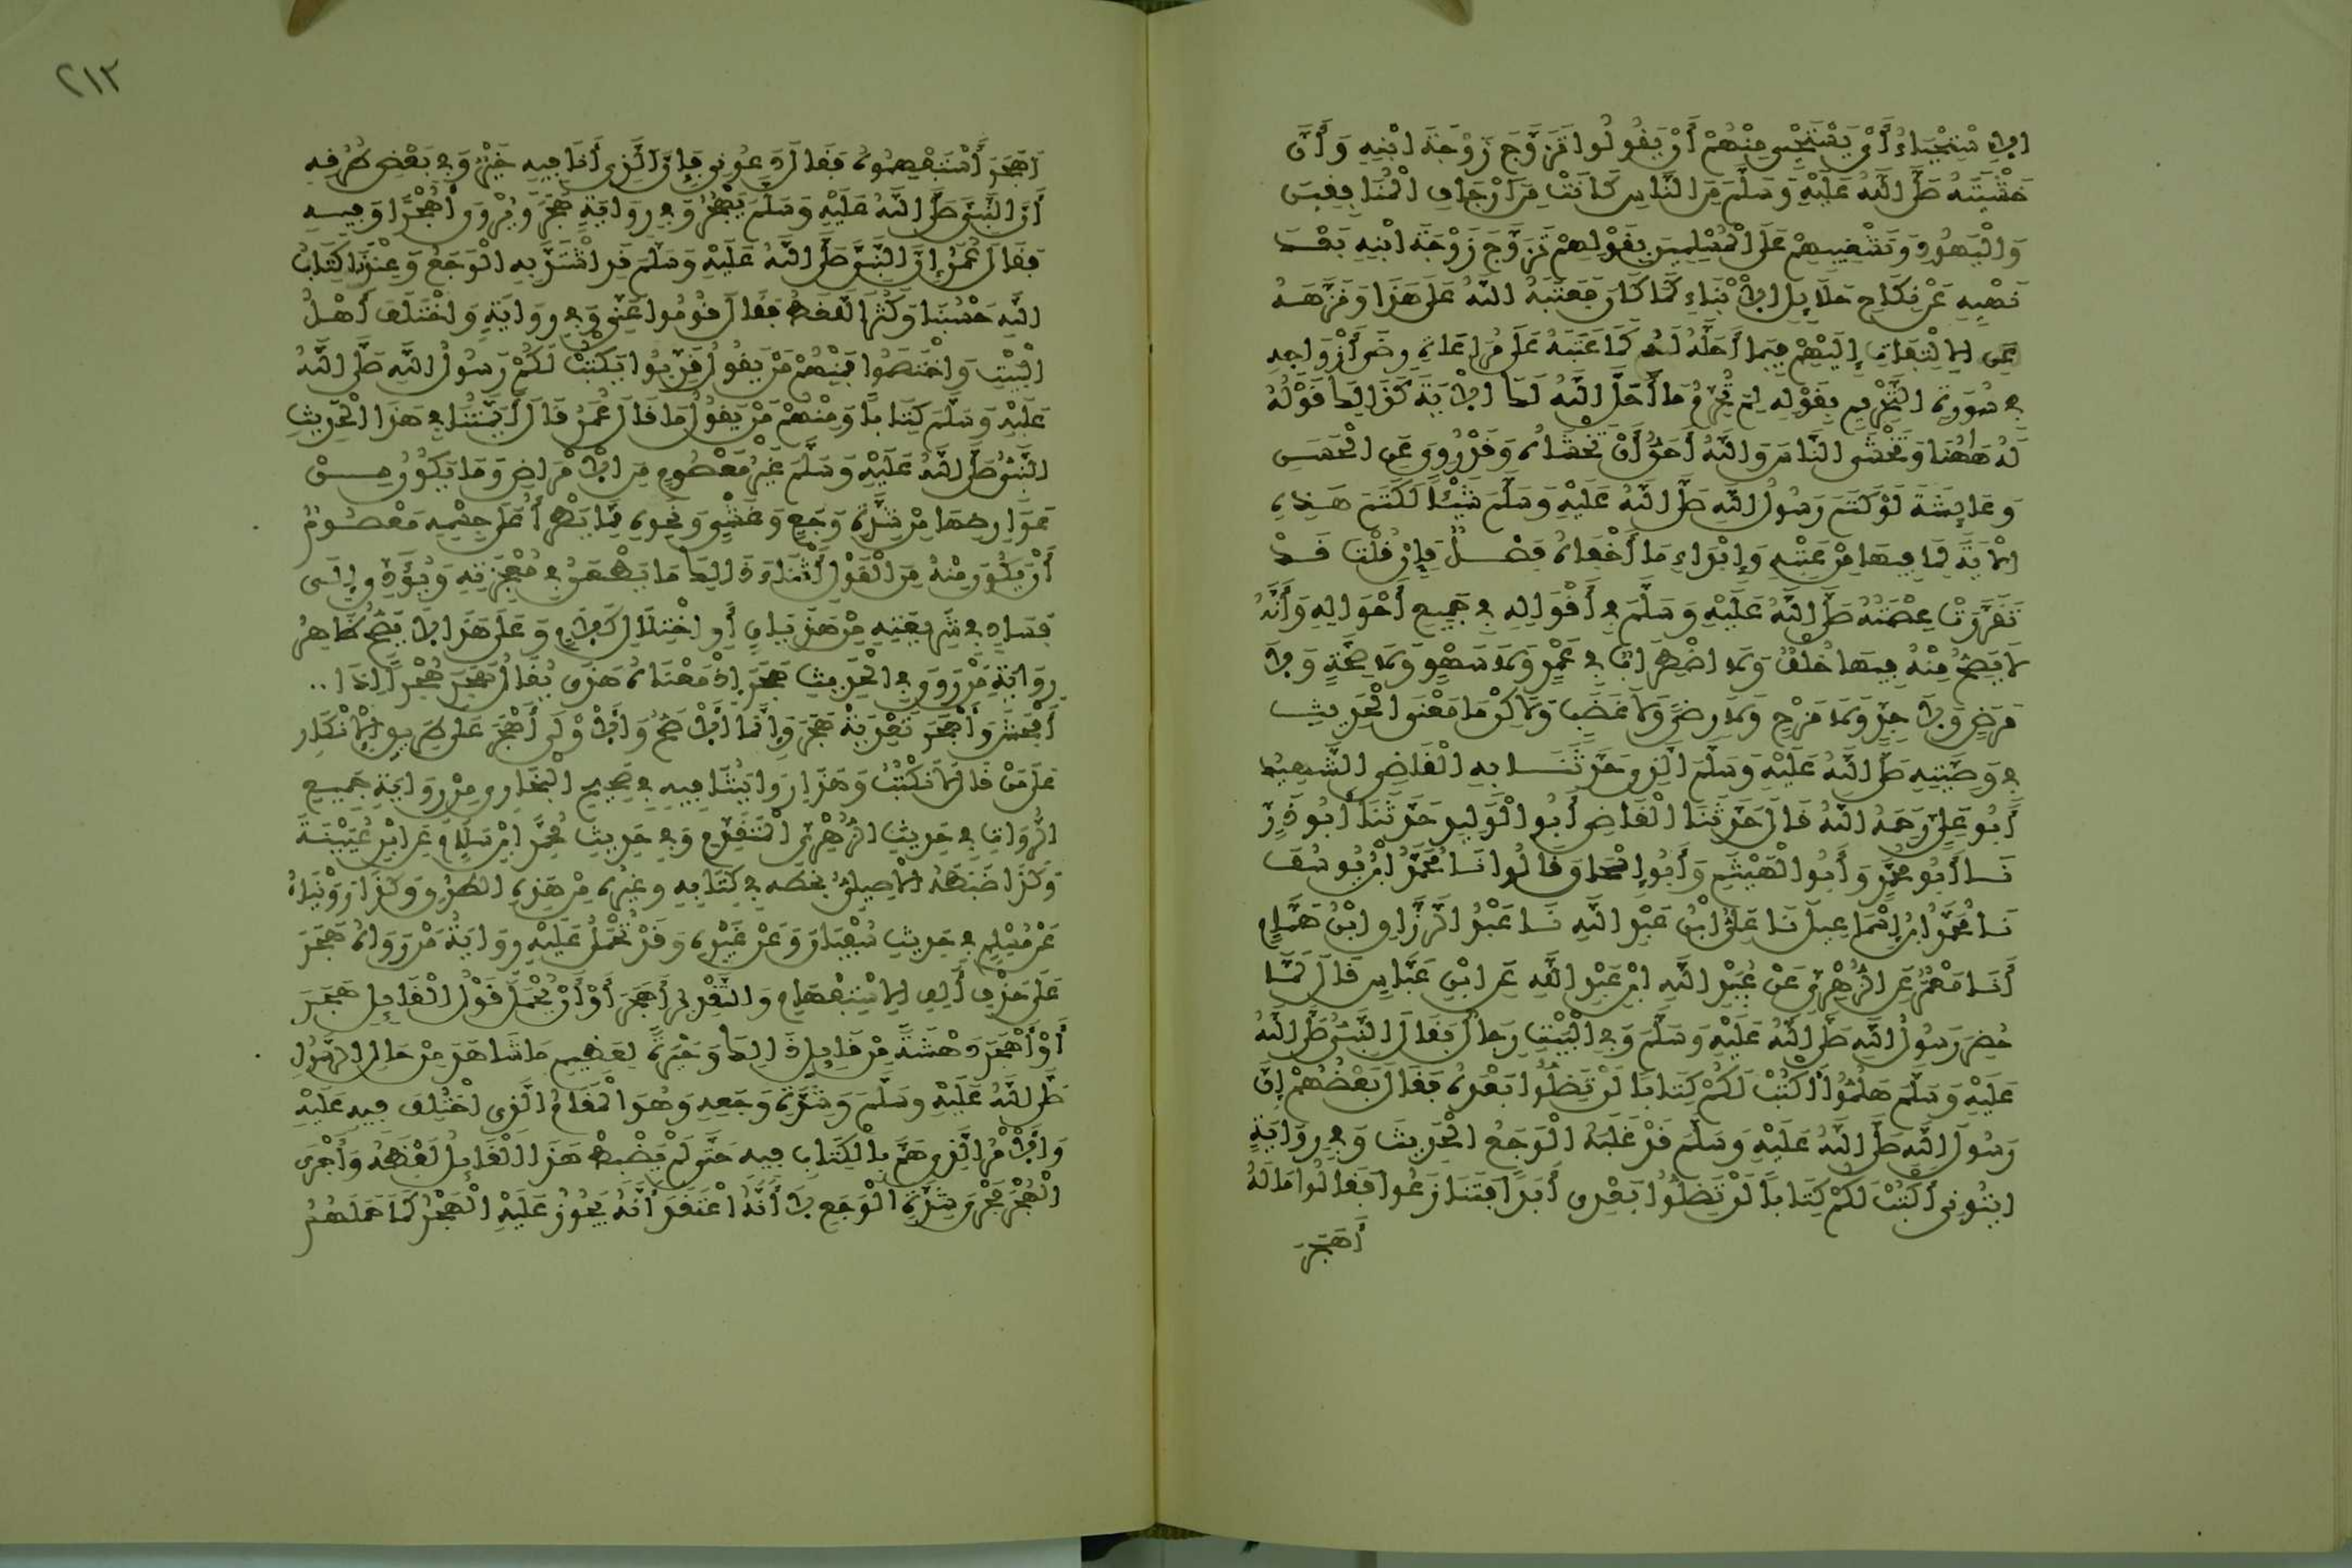 الاِسْتِحْيَاءُ أَيْ يَسْتَحْيِي مِنْهُمْ أَنْ يَقُولُوا تَزَوَّجَ زَوْجَةَ ابْنِهِ وَأَنَّ
خَشْيَتَهُ صَلَّى اللَّهُ عَلَيْهِ وَسَلَّمَ مِنَ النَّاسِ كَانَتْ مِنَ ارْجَافِ الْمُنَافِقِينَ
وَالْيَهُودِ وَتَشْغِيبِهِمْ عَلَى الْمُسْلِمِينَ بِقَوْلِهِمْ تَزَوَّجَ زَوْجَةَ ابْنِهِ بَعْدَ
نَهْيِهِ عَنْ نِكَاحِ حَلَائِلِ الْأَبْنَاءِ كَمَا كَانَ فَعَتَبَهُ اللَّهُ عَلَى هَذَا وَنَزَّهَهُ
عَنِ الِالْتِفَاتِ إِلَيْهِمْ فِيمَا أَحَلَّهُ لَهُ كَمَا عَتَبَهُ عَلَى مُرَاعَاةِ رِضَى أَزْوَاجِهِ
فِي سُورَةِ التَّحْرِيمِ بِقَوْلِهِ لِمَ تُحَرِّمُ مَا أَحَلَّ اللَّهُ لَكَ الْأَيَةَ كَذَلِكَ قَوْلُهُ
لَهُ هَاهُنَا وَتَخْشَى النَّاسَ وَاللَّهُ أَحَقُّ أَنْ تَخْشَاهُ وَقَدْ رُوِيَ عَنِ الْحَسَنِ
وَعَائِشَةَ لَوْ كَتَمَ رَسُولُ اللَّهِ صَلَّى اللَّهُ عَلَيْهِ وَسَلَّمَ شَيْئًا لَكَتَمَ هَذِهِ
الْآيَةَ لِمَا فِيهَا مِنْ عَتْبِهِ وَإِبْدَاءِ مَا أَخْفَاهُ فَصْلٌ فَإِنْ قُلْتَ قَدْ
تَقَرَّرَتْ عِصْمَتُهُ صَلَّى اللَّهُ عَلَيْهِ وَسَلَّمَ فِي أَقْوَالِهِ فِي جَمِيعِ أَحْوَالِهِ وَأَنَّهُ
لَا يَصِحُّ مِنْهُ فِيهَا خُلْفٌ وَلَا اضْطِرَابٌ فِي عَمْدٍ وَلَا سَهْوٍ وَلَا صِحَّةٍ وَلَا
مَرَضٍ وَلَا جِدٍّ وَلَا مَزْحٍ وَلَا رِضًى وَلَا غَضَبٍ وَلَاكِنْ مَا مَعْنَى الْحَدِيثِ
فِي وَصِيَّتِهِ صَلَّى اللَّهُ عَلَيْهِ وَسَلَّمَ الَّذِي حَدَّثَنَا بِهِ الْقَاضِي الشَّهِيدُ
أَبُو عَلِيٍّ رَحِمَهُ اللَّهُ قَالَ حَدَّثَنَا الْقَاضِي أَبُو الْوَلِيدِ حَدَّثَنَا أَبُو ذَرٍّ
نَا أَبُو مُحَمَّدٍ وَأَبُو الْهَيْثَمِ وَأَبُو إِسْحَاقَ قَالُوا نَا مُحَمَّدُ ابْنُ يُوسُفَ
نَا مُحَمَّدُ ابْنُ إِسْمَاعِيلَ نَا عَلِيُّ ابْنُ عَبْدِ اللَّهِ نَا عَبْدُ الرَّزَّاقِ ابْنُ هَمَّامٍ
أَنَا مَعْمَرٌ عَنِ الزُّهْرِيِّ عَنْ عُبَيْدِ اللَّهِ ابْنِ عَبْدِ اللَّهِ عَنِ ابْنِ عَبَّاسٍ قَالَ لَمَّا
حُضِرَ رَسُولُ اللَّهِ صَلَّى اللَّهُ عَلَيْهِ وَسَلَّمَ وَفِي الْبَيْتِ رِجَالٌ فَقَالَ النَّبِيُّ صَلَّى اللَّهُ
عَلَيْهِ وَسَلَّمَ هَلُمُّوا أَكْتُبْ لَكُمْ كِتَابًا لَنْ تَضِلُّوا بَعْدَهُ فَقَالَ بَعْضُهُمْ إِنَّ
رَسُولَ اللَّهِ صَلَّى اللَّهُ عَلَيْهِ وَسَلَّمَ قَدْ غَلَبَهُ الْوَجَعُ الْحَدِيثَ وَفِي رِوَايَةٍ
ايتُونِي أَكْتُبْ لَكُمْ كِتَابًا لَنْ تَضِلُّوا بَعْدِي أَبَدًا فَتَنَازَعُوا فَقَالُوا مَا لَهُ
أَهَجَرَ
٢١٣
أَهَجَرَ اسْتَفْهِمُوهُ فَقَالَ دَعُونِي فَإِنَّ الَّذِي أَنَا فِيهِ خَيْرٌ وَفِي بَعْضِ طُرُقِهِ
أَنَّ النَّبِيَّ صَلَّى اللَّهُ عَلَيْهِ وَسَلَّمَ يَهْجُرُ وَفِي رِوَايَةٍ هَجَرَ وَيُرْوَى أَهُجْرًا وَفِيهِ
فَقَالَ عُمَرُ إِنَّ النَّبِيَّ صَلَّى اللَّهُ عَلَيْهِ وَسَلَّمَ قَدِ اشْتَدَّ بِهِ الْوَجَعُ وَعِنْدَنَا كِتَابُ
اللَّهِ حَسْبُنَا وَكَثُرَ اللَّغَطُ فَقَالَ قُومُوا عَنِّي وَفِي رِوَايَةٍ وَاخْتَلَفَ أَهْلُ
الْبَيْتِ وَاخْتَصَمُوا فَمِنْهُمْ مَنْ يَقُولُ قَرِّبُوا يَكْتُبْ لَكُمْ رَسُولُ اللَّهِ صَلَّى اللَّهُ
عَلَيْهِ وَسَلَّمَ كِتَابًا وَمِنْهُمْ مَنْ يَقُولُ مَا قَالَ عُمَرُ قَالَ أَئِمَّتُنَا فِي هَذَا الْحَدِيثِ
النَّبِيُّ صَلَّى اللَّهُ عَلَيْهِ وَسَلَّمَ غَيْرُ مَعْصُومٍ مِنَ الْأَمْرَاضِ وَمَا يَكُونُ مِنْ
عَوَارِضِهَا مِنْ شِدَّةِ وَجَعٍ وَغَشْيٍ وَنَحْوِهِ مِمَّا يَطْرَأُ عَلَى جِسْمِهِ مَعْصُومٌ
أَنْ يَكُونَ مِنْهُ مِنَ الْقَوْلِ أَثْنَاءَ ذَالِكَ مَا يَطْعَنُ فِي مُعْجِزَتِهِ وَيُؤَدِّي إِلَى
فَسَادٍ فِي شَرِيعَتِهِ مِنْ هَذَيَانٍ أَوِ اخْتِلَالِ كَلَامٍ وَعَلَى هَذَا لَا يَصِحُّ ظَاهِرُ
رِوَايَةِ مَنْ رَوَى فِي الْحَدِيثِ هَجَرَ إِذْ مَعْنَاهُ هَذَى يُقَالُ هَجَرَ هُجْرًا إِذَا..
أَفْحَشَ وَأَهْجَرَ تَعْدِيَةُ هَجَرَ وَإِنَّمَا الْأَصَحُّ وَالْأَوْلَى أَهَجَرَ عَلَى طَرِيقِ الْإِنْكَارِ
عَلَى مَنْ قَالَ لَا نَكْتُبُ وَهَكَذَا رِوَايَتُنَا فِيهِ فِي صَحِيحِ الْبُخَارِي مِنْ رِوَايَةِ جَمِيعِ
الرُّوَاةِ فِي حَدِيثِ الزُّهْرِيِّ الْمُتَقَدِّمِ وَفِي حَدِيثِ مُحَمَّدِ ابْنِ سَلَامٍ عَنِ ابْنِ عُيَيْنَةَ
وَكَذَا ضَبَطَهُ الْأَصِيلِيُّ بِخَطِّهِ فِي كِتَابِهِ وَغَيْرُهُ مِنْ هَذِهِ الطُّرُقِ وَكَذَا رَوَيْنَاهُ
عَنْ مُسْلِمٍ فِي حَدِيثِ سُفْيَانَ وَعَنْ غَيْرِهِ وَقَدْ تُحْمَلُ عَلَيْهِ رِوَايَةُ مَنْ رَوَاهُ هَجَرَ
عَلَى حَذْفِ أَلِفِ الِاسْتِفْهَامِ وَالتَّقْدِيرُ أَهَجَرَ أَوْ أَنْ يُحْمَلَ قَوْلُ الْقَائِلِ هَجَرَ
أَوْ أَهْجَرَ دَهْشَةً مِنْ قَائِلِ ذَالِكَ وَحَيْرَةً لِعَظِيمِ مَا شَاهَدَ مِنْ حَالِ الرَّسُولِ
صَلَّى اللَّهُ عَلَيْهِ وَسَلَّمَ وَشِدَّةِ وَجَعِهِ وَهُوَ الْمَقَامُ الَّذِي اخْتُلِفَ فِيهِ عَلَيْهِ
وَالْأَمْرُ الَّذِي هَمَّ بِالْكِتَابِ فِيهِ حَتَّى لَمْ يَضْبِطْ هَذَا الْقَائِلُ لَفْظَهُ وَأَجْرَى
الْهُجْرَ مُجْرَى شِدَّةِ الْوَجَعِ لَا أَنَّهُ اعْتَقَدَ أَنَّهُ يَجُوزُ عَلَيْهِ الْهَجْرُ كَمَا حَمَلَهُمْ